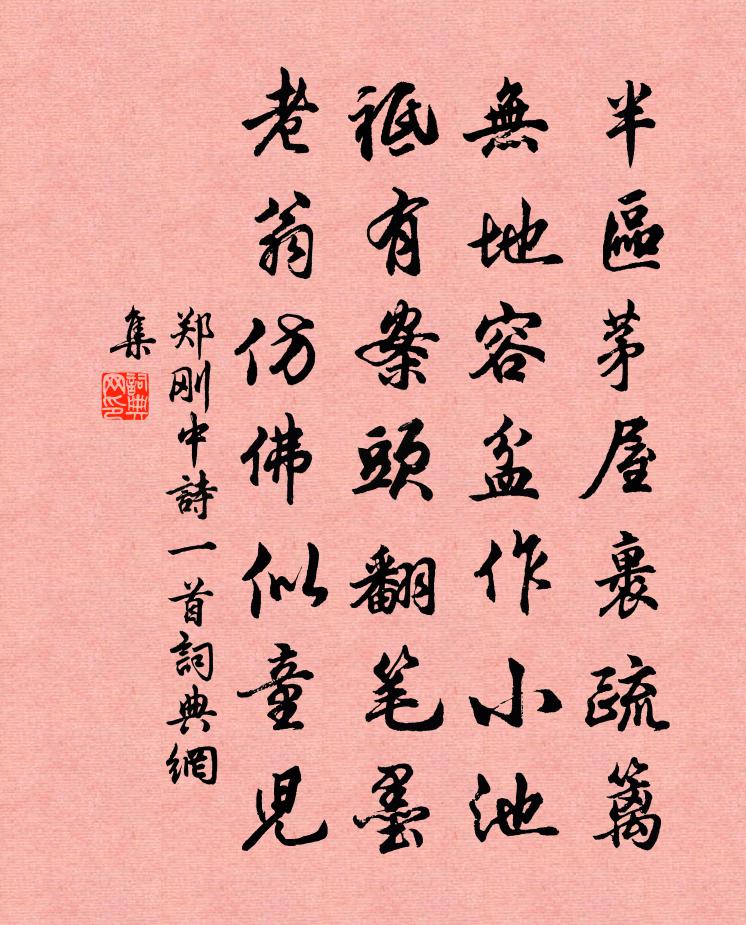 半區茅屋裹疏篱
無地容盆作小池
祗有案頭翻笔墨
老翁仿佛似童兒
郑刚中詩一首詞典網
集
詞典網印